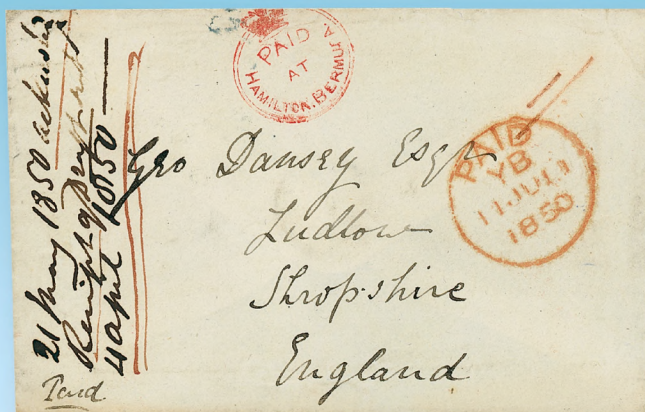 PAID
AT
HAMILTON. BERMUDA
PAID
YB
11 JUL 11
1850
Geo Dansey Esqr
Ludlow
Shropshire
England
21 May 1850
Receipt of my
4 April 1850
Paid